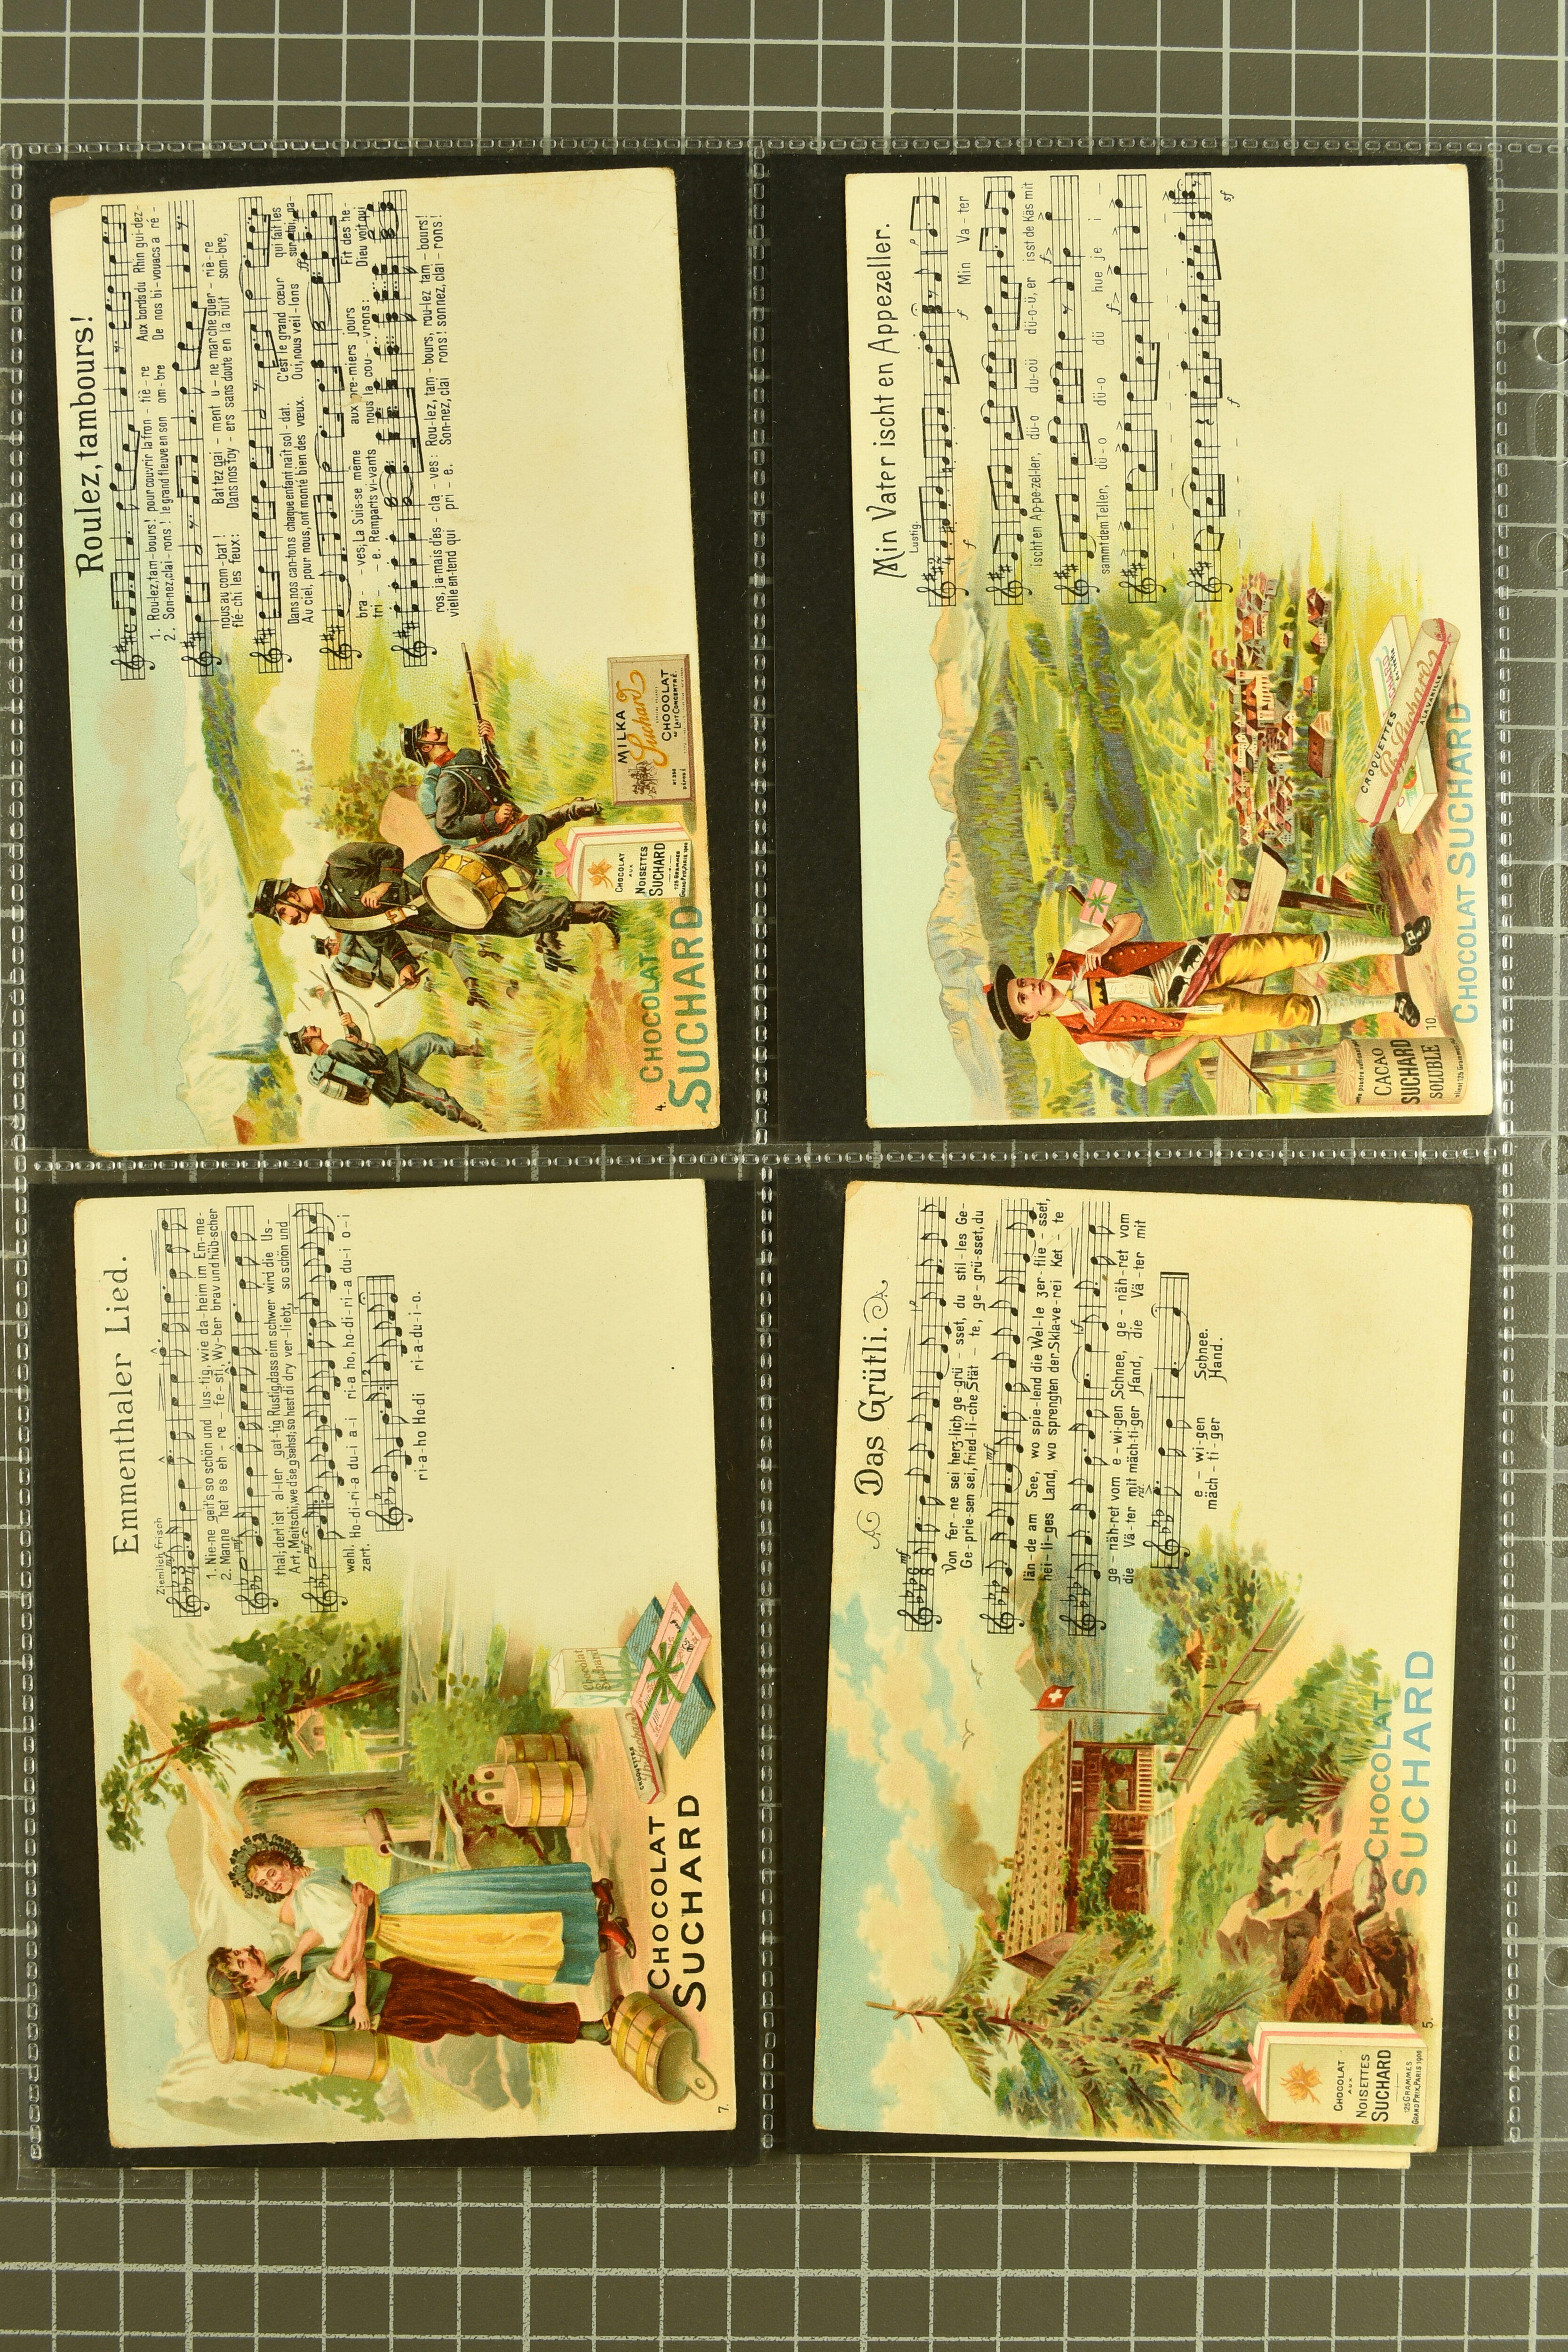 Roulez, tambours!
1. Rou-lez, tam-bours! pour couvrir la fron - tiè - re Aux bords du Rhin gui-dez-
2. Son-nez, clai - rons! le grand fleuve en son om - bre De nos bi - vouacs a ré -
nous au com - bat! Bat tez gai - ment u - ne marche guer - riè - re
flé - chi les feux: Dans nos foy - ers sans doute en la nuit som - bre,
Dans nos can-tons chaque enfant naît sol - dat. C'est le grand cœur qui fait les
Au ciel, pour nous, ont monté bien des vœux. Oui, nous veil - lons sur toi, pa-
bra - ves; La Suis-se même aux pre-miers jours Fit des hé-
tri - e. Remparts vi-vants nous la cou - vrons: Dieu voit qui
ros, ja-mais d'es - cla - ves: Rou-lez, tam - bours, rou-lez tam - bours!
vielle en-tend qui pri - e. Son-nez, clai rons! sonnez, clai - rons!
MILKA
Suchard
CHOCOLAT
AU LAIT CONCENTRÉ
CHOCOLAT
AUX
NOISETTES
SUCHARD
125 GRAMMES
GRAND PRIX, PARIS 1900
4.
CHOCOLAT
SUCHARD
Min Vater ischt en Appezeller.
Lustig.
f f Min Va - ter
ischt en Ap-pe-zel-ler, dü-o du-oü dü-o-ü, er isst de Käs mit
sammt dem Teller, dü-o dü-o dü hue je i —
f sf
CROQUETTES
Suchard
A LA VANILLE
CACAO
SUCHARD
SOLUBLE
10.
CHOCOLAT SUCHARD
Emmenthaler Lied.
Ziemlich frisch
mf
1. Nie-ne geit's so schön und lus-tig, wie da-heim im Em-me-
2. Manne het es eh - re - fe-sti, Wy-ber brav und hüb-scher
thal; dert ist al-ler gat-tig Rustig, dass eim schwer wird die Us-
Art, Meitschi, we d'se g'sehst; so hest di dry ver-liebt, so schön und
wahl. Ho-di-ri-a du-i a-i ri-a ho, ho-di-ri-a du-i o-i
zart.
ri-a-ho Ho-di ri-a-du-i-o.
Chocolat
Suchard
CROQUETTES
Suchard
CHOCOLAT
SUCHARD
7.
Das Grütli.
mf
Von fer-ne sei herz-lich ge-grü - sset, du stil-les Ge-
Ge-prie-sen sei, fried-li-che Stät - te, ge-grü-sset, du
län-de am See, wo spie-lend die Wel-le zer-flie - sset,
hei-li-ges Land, wo sprengten der Skla-ve-rei Ket - te
ge - näh-ret vom e-wi-gen Schnee, ge - näh-ret vom
die Vä-ter mit mäch-ti-ger Hand, die Vä-ter mit
e - wi-gen Schnee.
mäch-ti-ger Hand.
CHOCOLAT
SUCHARD
CHOCOLAT
AUX
NOISETTES
SUCHARD
125 GRAMMES
GRAND PRIX, PARIS 1900
5.